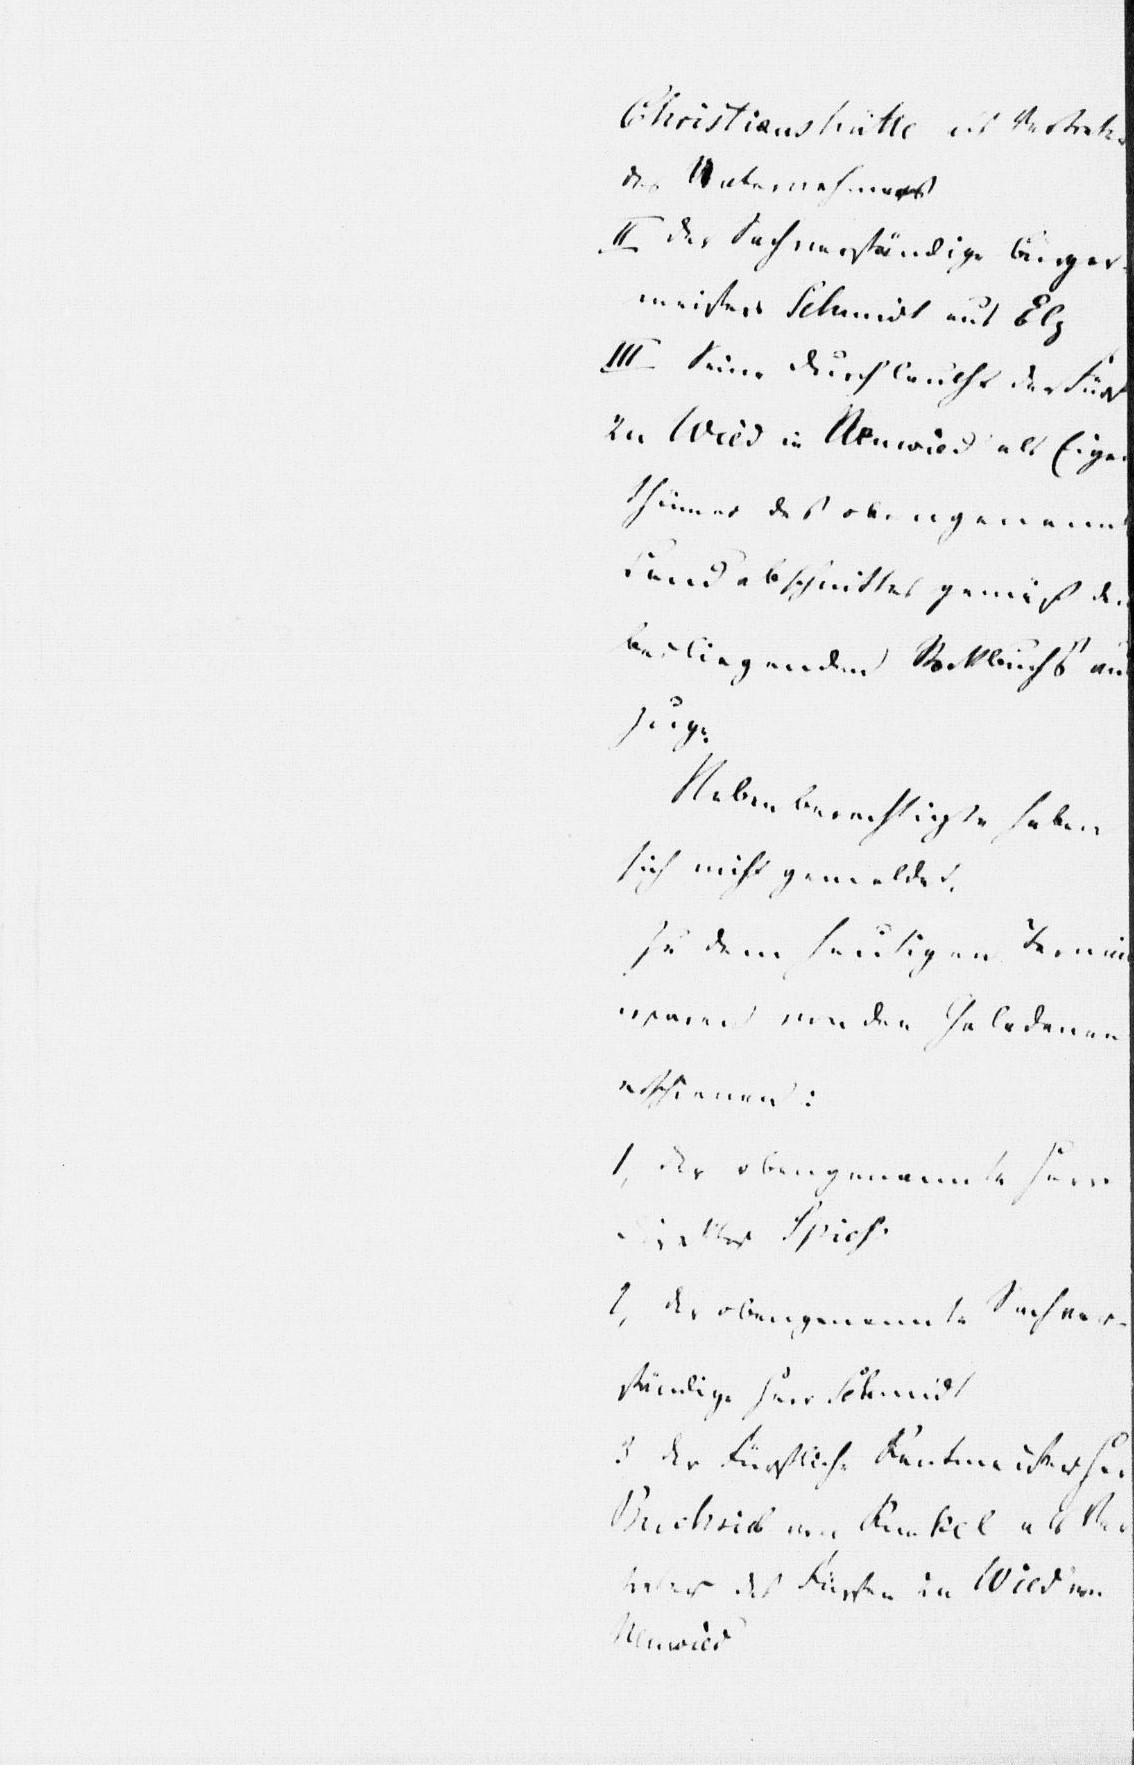 Christianshütte als Vertreter
des Unternehmers
II der Sachverständige Bürger-
meister Schmidt aus Elz
III Seine Durchlaucht der Fürst
zu Wied in Neuwied als Eigen
thümer des obengenannt
Landabschnittes gemäß dem
beiliegenden Stockbuchs aus
zuge.
Nebenberechtigte haben
sich nicht gemeldet.
Zu dem heutigen Termin
waren von den Geladenen
erschienen:
1, der obengenannte Herr
Direktor Spich
2, der obengenannte Sachver-
ständige Herr Schmidt
3 der Fürstliche Rentmeister Herr
von Runkel als Ver
treter des Fürsten zu Wied von
Neuwied